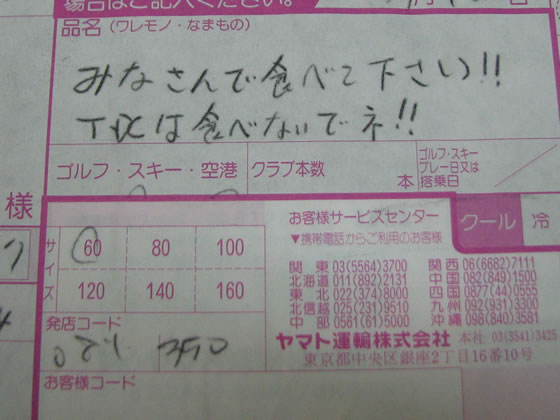 場合はご記入ください。
品名(ワレモノ・なまもの)
みなさんで食べて下さい!!
は食べないでネ!!
ゴルフ・スキー・空港
クラブ本数 本
ゴルフ・スキー
プレー日又は
搭乗日
様
お客様サービスセンター
▼携帯電話からご利用のお客様
クール 冷
サイズ
60 80 100
120 140 160
関東 03(5564)3700
北海道 011(892)2131
東北 022(374)8000
北信越 025(231)9510
中部 0561(61)5000
関西 06(6682)7111
中国 082(849)1500
四国 0877(44)0555
九州 092(931)3300
沖縄 098(840)3581
発店コード
ヤマト運輸株式会社 本社 03(3541)3425
東京都中央区銀座2丁目16番10号
お客様コード